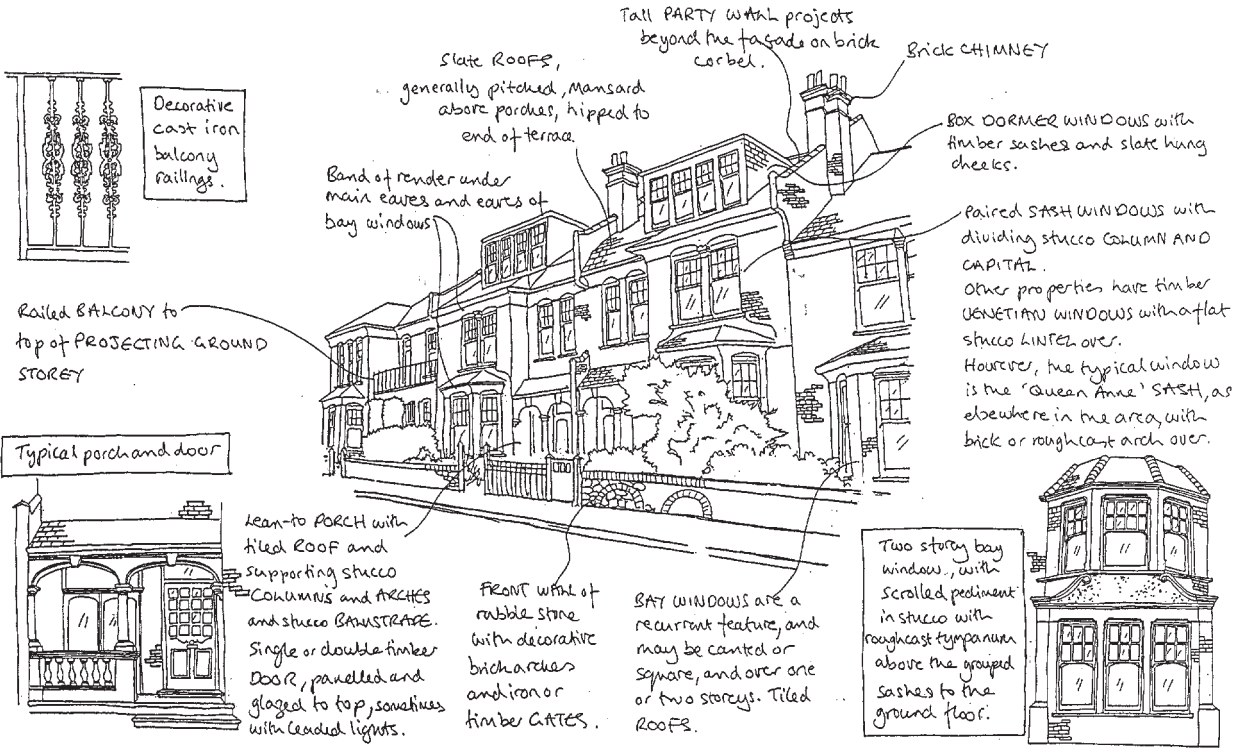 Tall PARTY WALL projects
beyond the façade on brick
corbel.
Brick CHIMNEY
Slate ROOFS,
generally pitched, Mansard
above porches, hipped to
end of terrace.
Decorative
cast iron
balcony
railings.
BOX DORMER WINDOWS with
timber sashes and slate hung
cheeks.
Band of render under
main eaves and eaves of
bay windows
Paired SASH WINDOWS with
dividing stucco COLUMN AND
CAPITAL.
Other properties have timber
VENETIAN WINDOWS with a flat
stucco LINTEL over.
However, the typical window
is the 'Queen Anne' SASH, as
elsewhere in the area, with
brick or roughcast arch over.
Railed BALCONY to
top of PROJECTING GROUND
STOREY
Typical porch and door
Lean-to PORCH with
tiled ROOF and
supporting stucco
COLUMNS and ARCHES
and stucco BALUSTRADE.
Single or double timber
DOOR, panelled and
glazed to top, sometimes
with leaded lights.
FRONT WALL of
rubble stone
with decorative
brick arches
and iron or
timber GATES.
BAY WINDOWS are a
recurrent feature, and
may be canted or
square, and over one
or two storeys. Tiled
ROOFS.
Two storey bay
window, with
scrolled pediment
in stucco with
roughcast tympanum
above the grouped
sashes to the
ground floor.